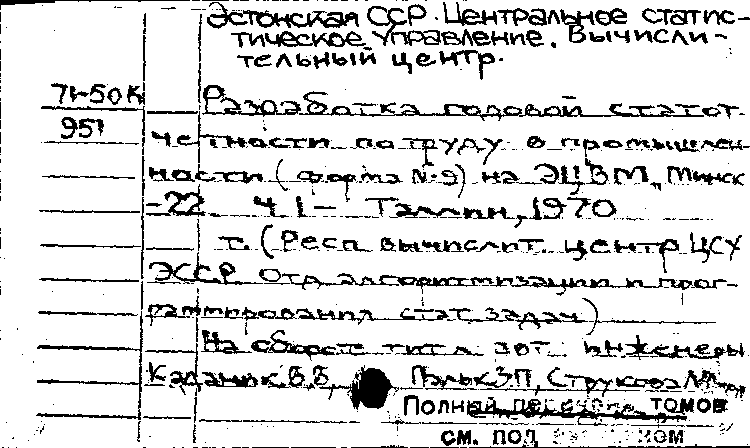 Эстонская ССР. Центральное статис-
тическое управление. Вычисли-
тельный центр.
71-50К Разработка годовой статот-
951 четности по труду в промышлен-
ности (форма №9) на ЭЦВМ „Минск
-22. Ч 1- Таллин, 1970
т. (Респ вычислит. центр ЦСУ
ЭССР. Отд алгоритмизации и прог-
раммирования стат. задач)
На обороте титл авт. инженеры
Каданик В.В., Пальк Э.П., Струкова
Полный перечень томов
см. под